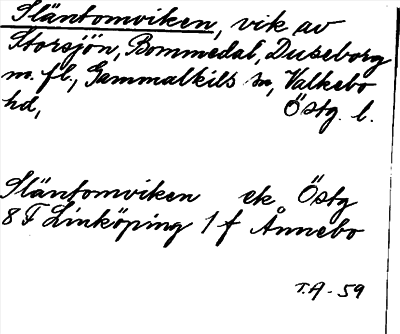 Släntomviken, vik av
Storsjön, Bommedal, Duseborg
m. fl., Gammalkils sn, Valkebo
hd, Östg. l.
Släntomviken ek Östg
8 F Linköping 1 f Ånnebo
T.A - 59